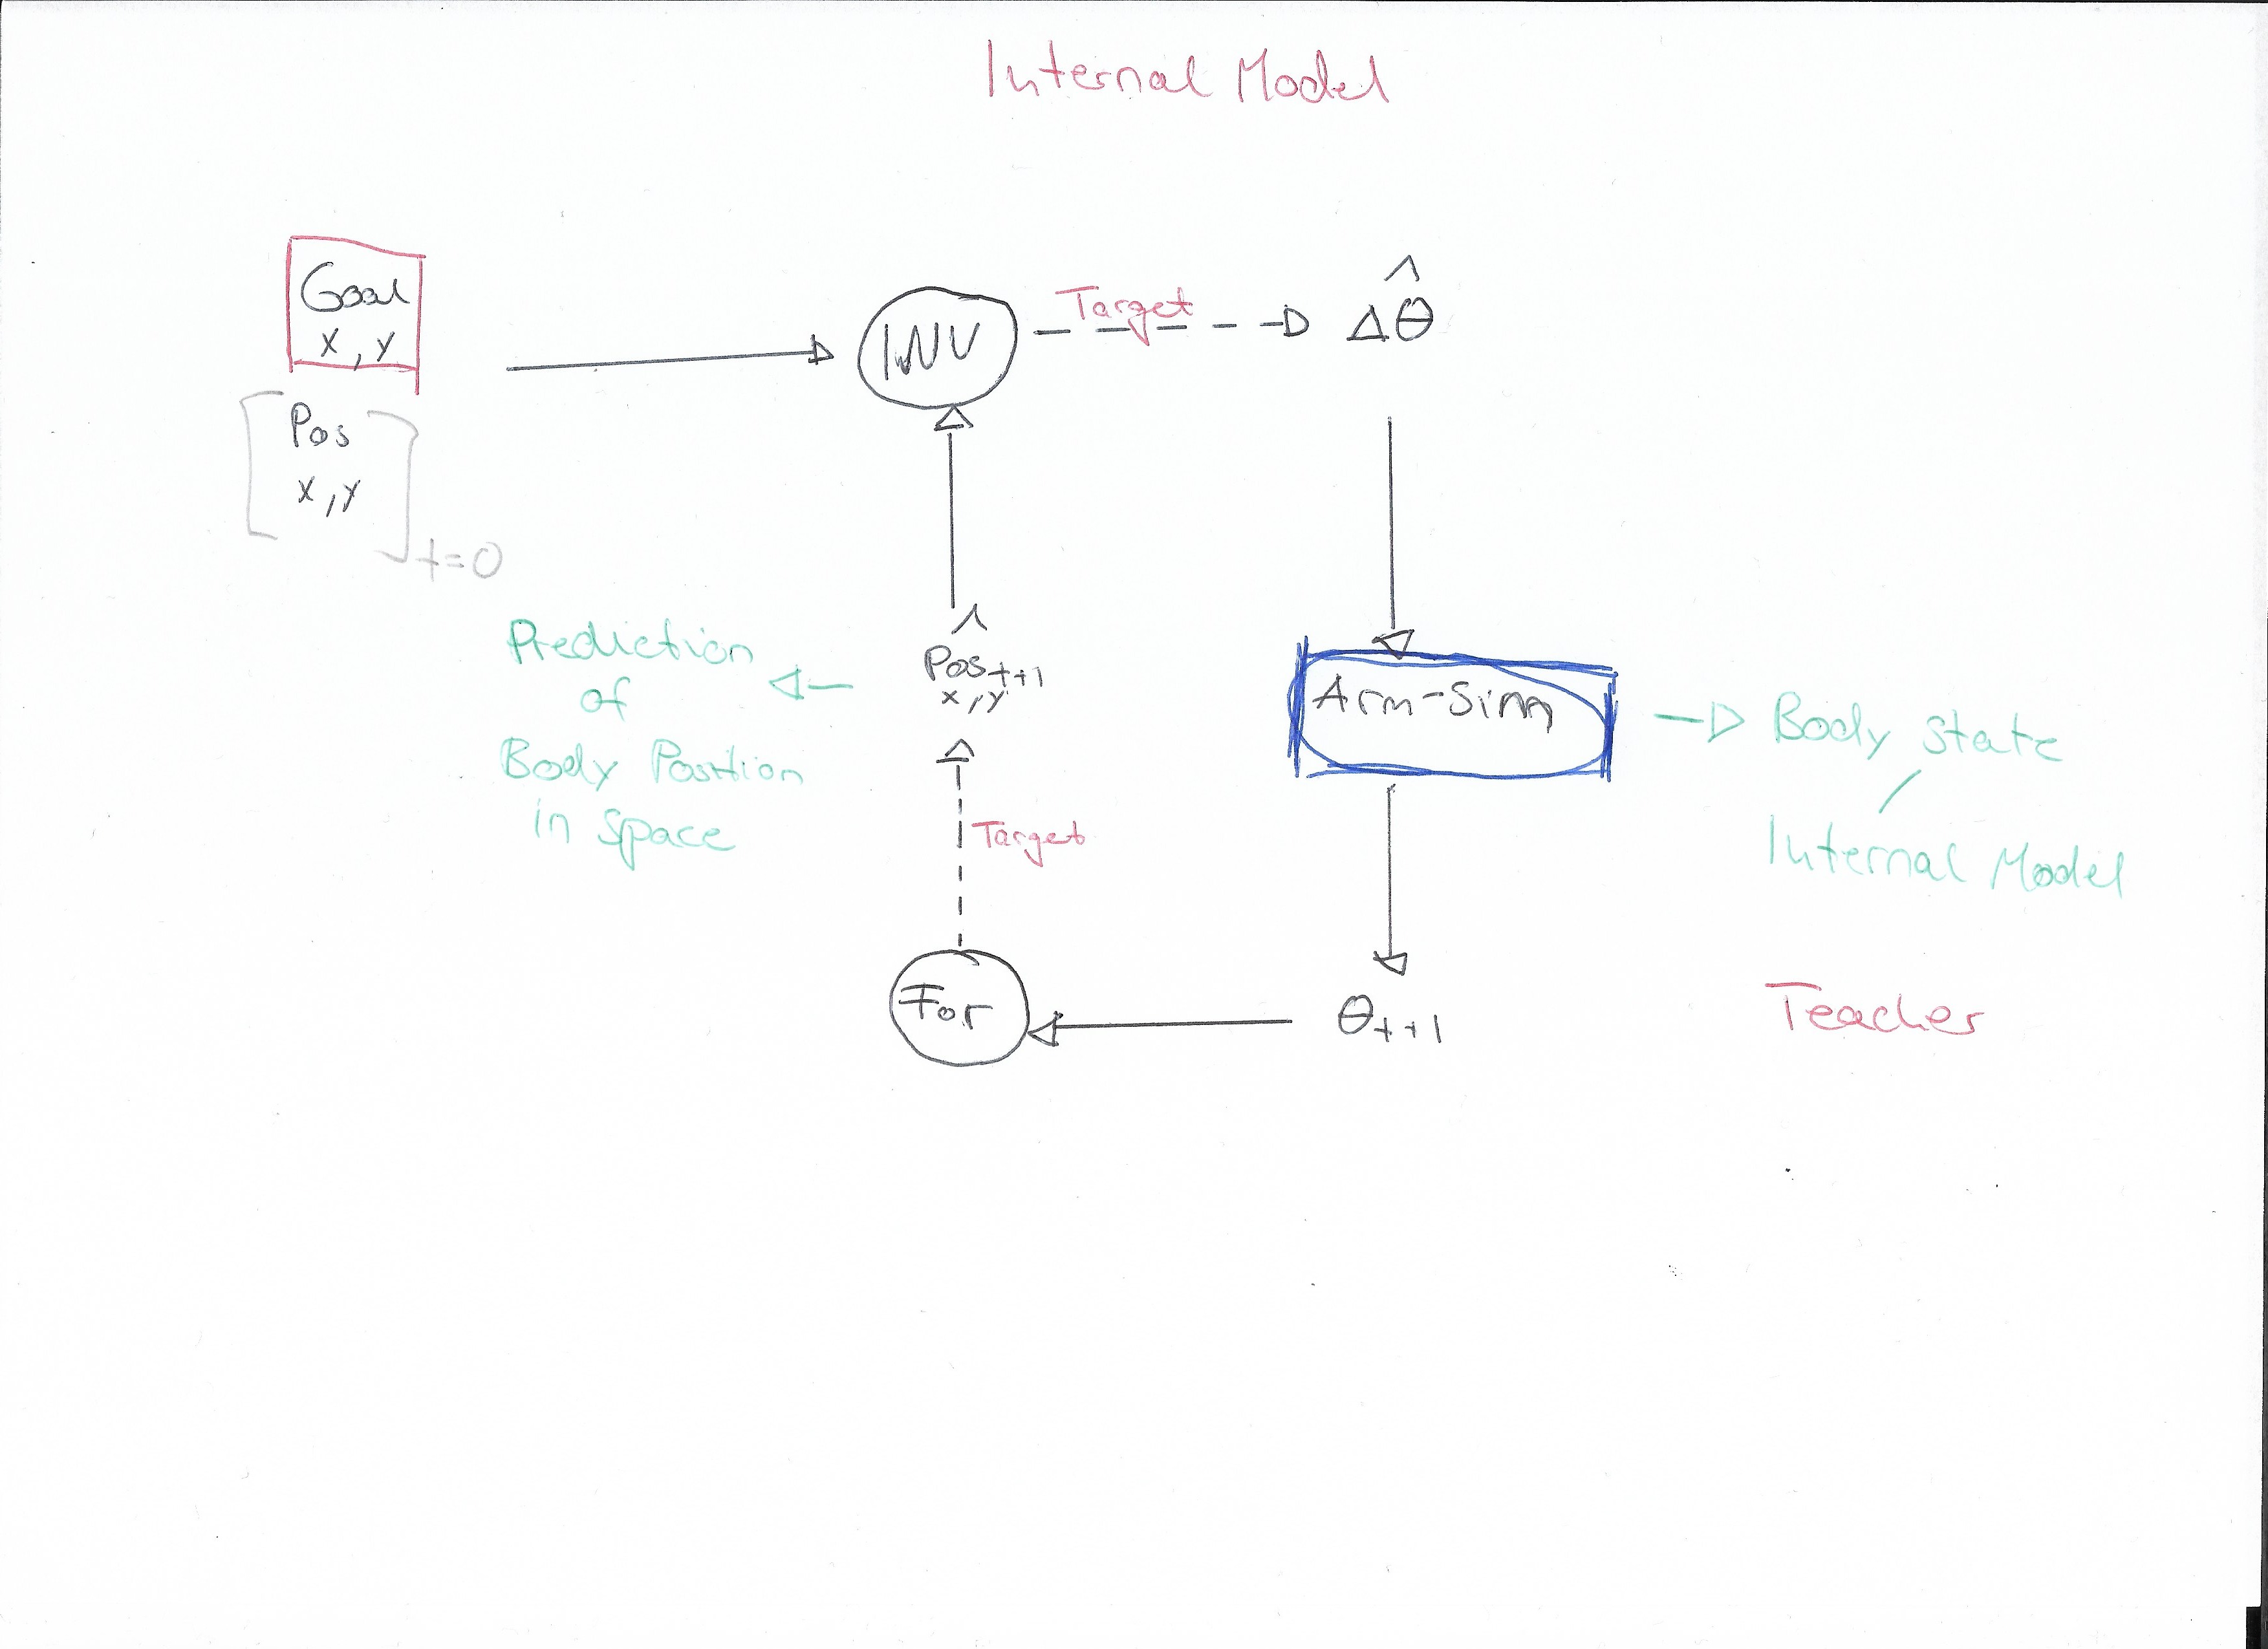 Internal Model
Goal
x, y
Pos
x, y
t=0
INV
Target
Δθ̂
Prediction
of
Body Position
in space
^
Pos t+1
x, y
Target
For
Arm-Sim
θt+1
Body state
/
Internal Model
Teacher